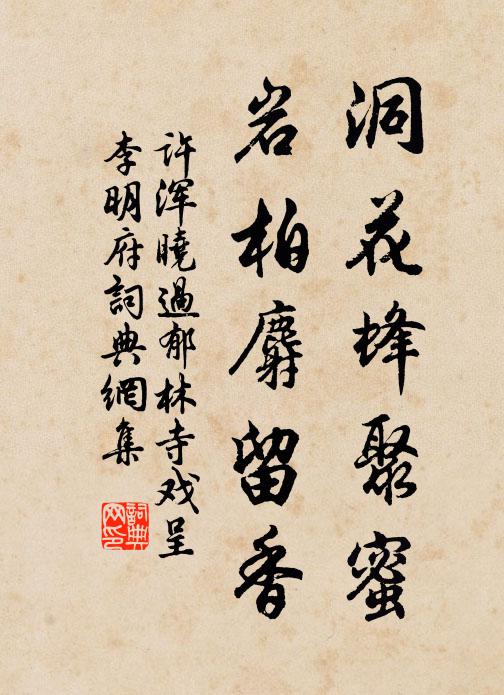 洞花蜂聚蜜
岩柏麝留香
许浑曉過郁林寺戏呈
李明府詞典網集
詞典
网印